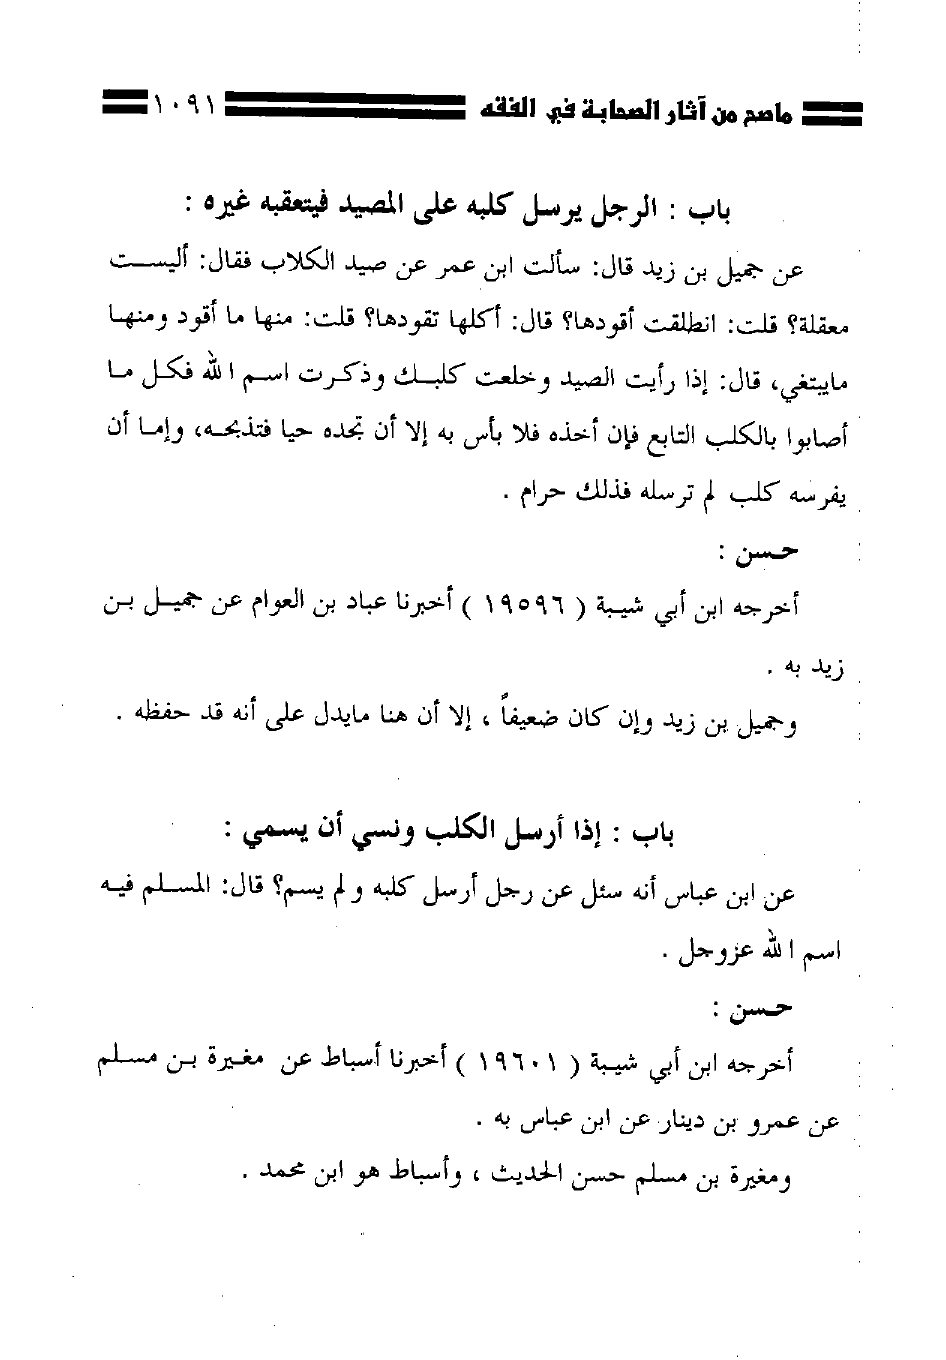 ماصح من آثار الصحابة في الفقه ١٠٩١
باب : الرجل يرسل كلبه على المصيد فيتعقبه غيره :
عن جميل بن زيد قال: سألت ابن عمر عن صيد الكلاب فقال: أليست
معقلة؟ قلت: انطلقت أقودها؟ قال: أكلها تقودها؟ قلت: منها ما أقود ومنها
مايبتغي، قال: إذا رأيت الصيد وخلعت كلبك وذكرت اسم الله فكل ما
أصابوا بالكلب التابع فإن أخذه فلا بأس به إلا أن تجده حيا فتذبحه، وإما أن
يفرسه كلب لم ترسله فذلك حرام .
حسن :
أخرجه ابن أبي شيبة ( ١٩٥٩٦ ) أخبرنا عباد بن العوام عن جميل بن
زيد به .
وجميل بن زيد وإن كان ضعيفاً ، إلا أن هنا مايدل على أنه قد حفظه .
باب : إذا أرسل الكلب ونسي أن يسمي :
عن ابن عباس أنه سئل عن رجل أرسل كلبه ولم يسم؟ قال: المسلم فيه
اسم الله عزوجل .
حسن :
أخرجه ابن أبي شيبة ( ١٩٦٠١ ) أخبرنا أسباط عن مغيرة بن مسلم
عن عمرو بن دينار عن ابن عباس به .
ومغيرة بن مسلم حسن الحديث ، وأسباط هو ابن محمد .